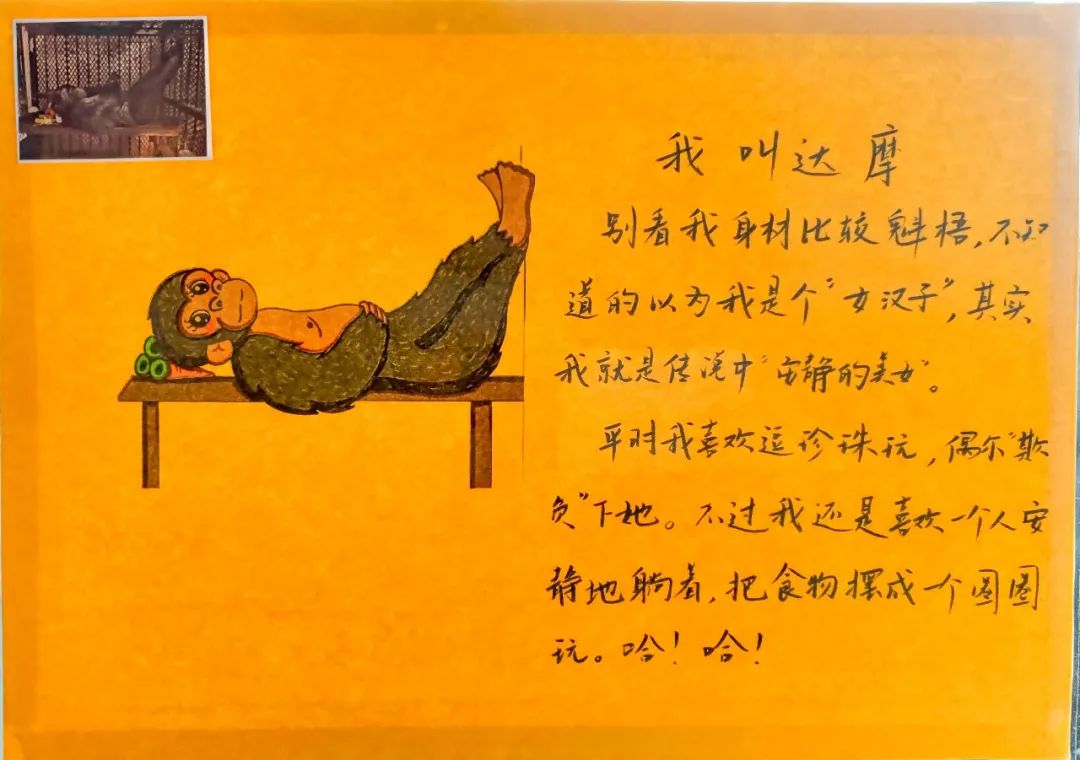 我叫达摩
别看我身材比较魁梧，不知
道的以为我是个“女汉子”，其实
我就是传说中“安静的美女”。
平时我喜欢逗珍珠玩，偶尔“欺
负”下她。不过我还是喜欢一个人安
静地躺着，把食物摆成一个圈圈
玩。哈！哈！